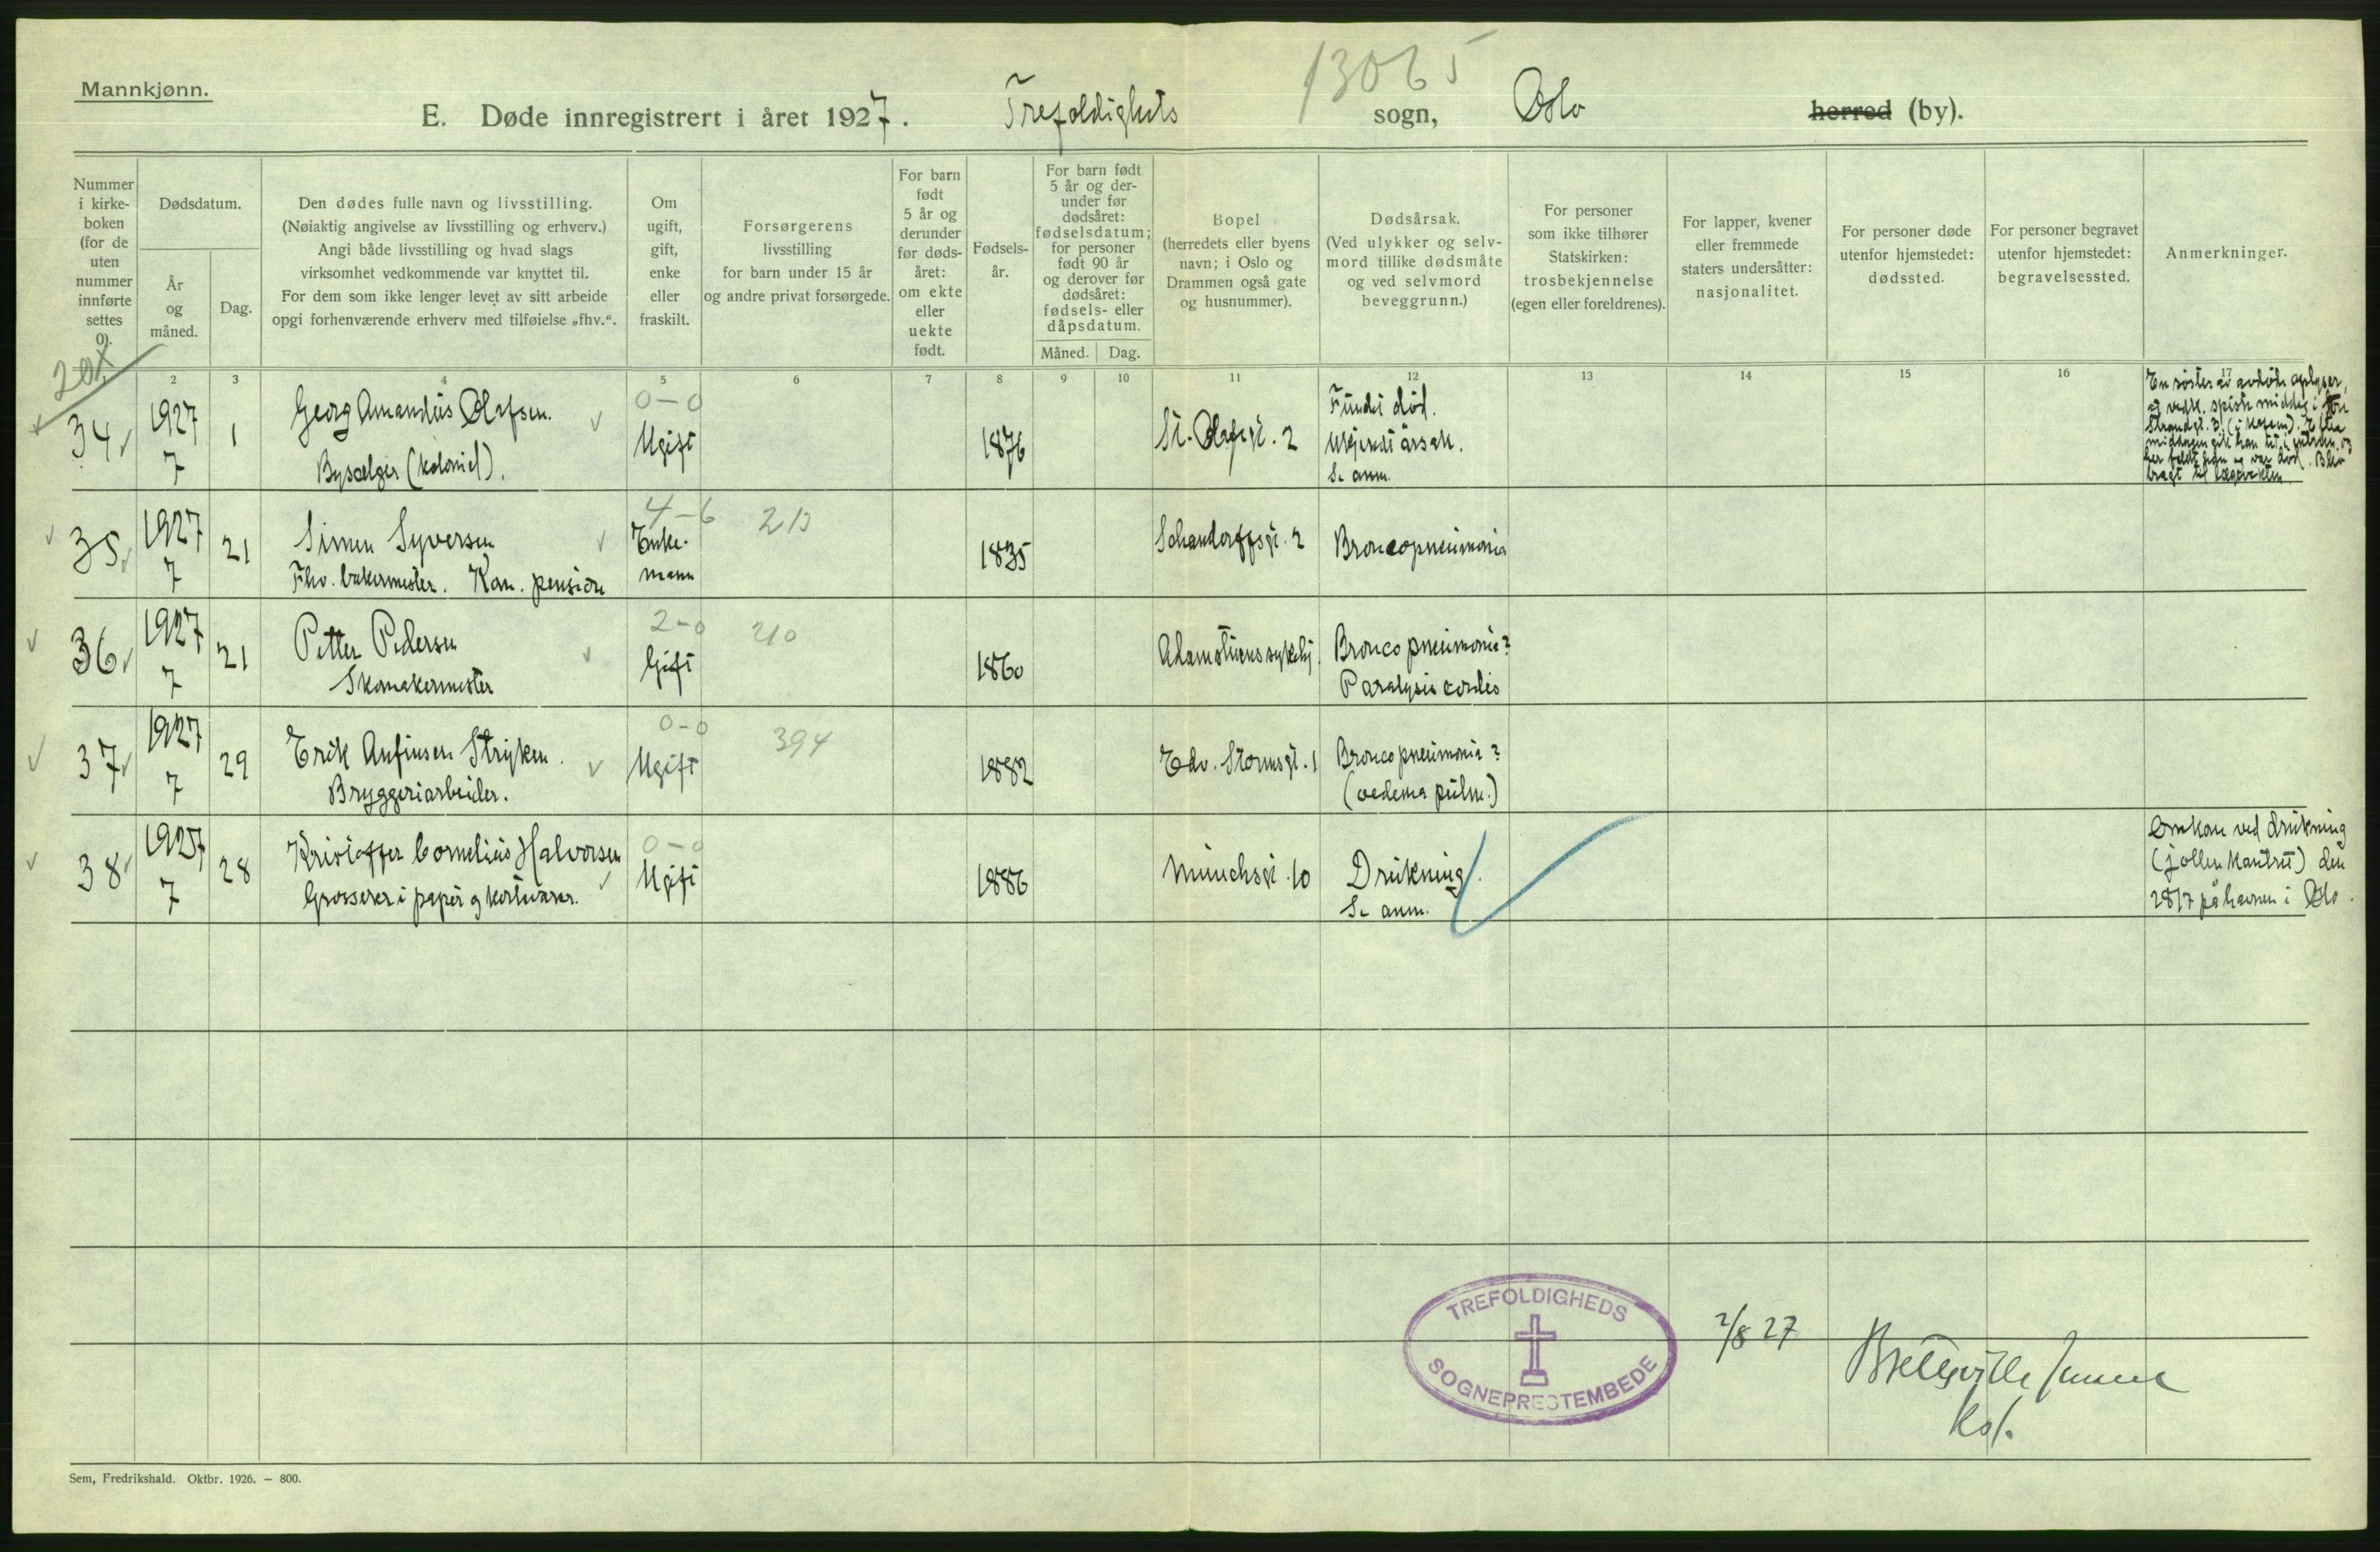 13065
Mannkjønn.
E. Døde innregistrert i året 1927. Trefoldighets sogn, Oslo herred (by).
Nummer i kirke-boken (for de uten nummer innførte settes 0).
Dødsdatum.
År og måned.
Dag.
Den dødes fulle navn og livsstilling.
(Nøiaktig angivelse av livsstilling og erhverv.)
Angi både livsstilling og hvad slags
virksomhet vedkommende var knyttet til.
For dem som ikke lenger levet av sitt arbeide
opgi forhenværende erhverv med tilføielse „fhv.“.
Om ugift, gift, enke eller fraskilt.
Forsørgerens
livsstilling
for barn under 15 år
og andre privat forsørgede.
For barn født 5 år og derunder før døds-året: om ekte eller uekte født.
Fødsels-år.
For barn født 5 år og der-under før dødsåret: fødselsdatum; for personer født 90 år og derover før dødsåret: fødsels- eller dåpsdatum.
Måned. Dag.
Bopel
(herredets eller byens
navn; i Oslo og
Drammen også gate
og husnummer).
Dødsårsak.
(Ved ulykker og selv-
mord tillike dødsmåte
og ved selvmord
beveggrunn.)
For personer
som ikke tilhører
Statskirken:
trosbekjennelse
(egen eller foreldrenes).
For lapper, kvener
eller fremmede
staters undersåtter:
nasjonalitet.
For personer døde
utenfor hjemstedet:
dødssted.
For personer begravet
utenfor hjemstedet:
begravelsessted.
Anmerkninger.
20X
1 2 3 4 5 6 7 8 9 10 11 12 13 14 15 16 17
34. 1927 7 1 Georg Amandus Olafsen. 0-0 Ugift 1876 St. Olafsgt. 2 Fundet død.
Bysælger (kolonial). Ukjendt årsak.
Se anm.
En søster av avdøde oplyser,
at vedk. spiste middag i Store
Strandgt. 3 Efter
middagen gik han ut i og
her faldt han og var død. Blev
bragt til lægevakten
35. 1927 7 21 Simen Syversen 4-6 213 Enke-mann 1835 Schandorffsgt. 2 Broncopneumonia
Fhv. bakermester. Kom. pension
36. 1927 7 21 Petter Pedersen 2-0 210 Gift 1860 Adamstuens sykehj. Broncopneumonia?
Skomakermester Paralysis cordis
37. 1927 7 29 Erik Anfinsen Stryken. 0-0 394 Ugift 1882 Edv. Stormsgt. 1 Broncopneumonia?
Bryggeriarbeider. (oedema pulm.)
38. 1927 7 28 Kristoffer Cornelius Halvorsen 0-0 Ugift 1886 Munchsgt. 10 Drukning.
Grosserer i papir og kortevarer. Se anm.
Omkom ved drukning
(jollen kantret) den
28/7 på havnen i Oslo.
TREFOLDIGHEDS
SOGNEPRESTEMBEDE
2/8 27
Bretteville Jensen
kst.
Sem, Fredrikshald. Oktbr. 1926. — 800.